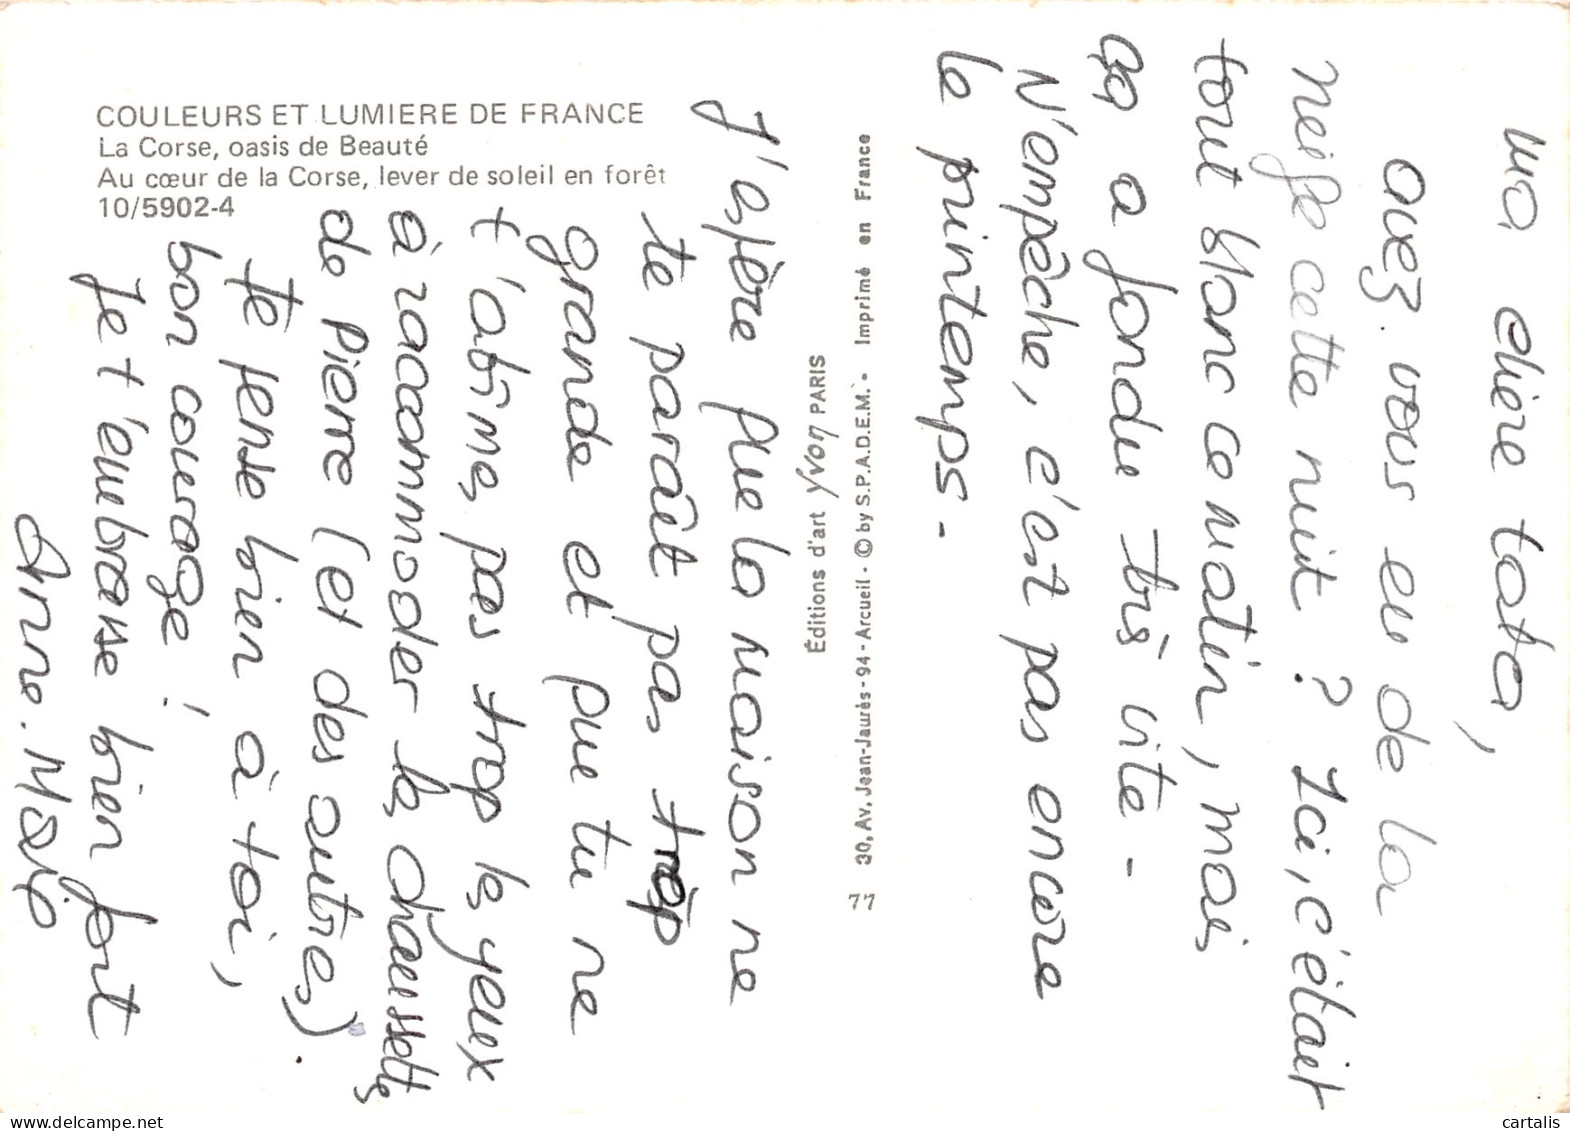 COULEURS ET LUMIERE DE FRANCE
La Corse, oasis de Beauté
Au cœur de la Corse, lever de soleil en forêt
10/5902-4
Ma chère tata,
avez-vous eu de la
neige cette nuit ? Ici, c'était
tout blanc ce matin, mais
ça a fondu très vite -
N'empêche, c'est pas encore
le printemps -
30, Av. Jean-Jaurès - 94 - Arcueil - © by S.P.A.D.E.M. - Imprimé en France
77
Éditions d'art Yvon PARIS
J'espère que la maison ne
te paraît pas trop
grande et que tu ne
t'abîmes pas trop les yeux
à raccommoder les chaussettes
de Pierre (et des autres).
Je pense bien à toi,
bon courage !
Je t'embrasse bien fort
Anne-Marie
delcampe.net
cartalis